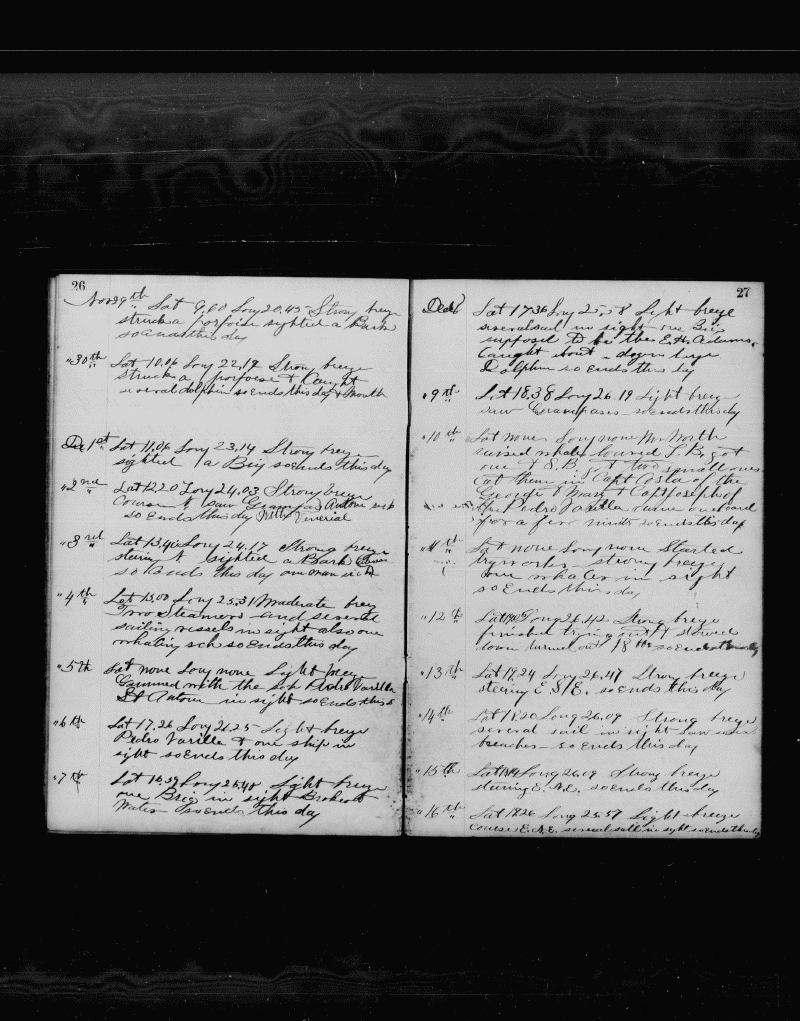 26
Nov 29th Lat 9.00 Long 20.45 Strong breeze
struck a porpoise sighted a Bark
so ends this day
" 30th Lat 10.06 Long 22.19 Strong breeze
struck a porpoise & Caught
several dolphin so ends this day & Month
Dec 1st Lat 11.06 Long 23.14 Strong breeze
sighted a Brig so ends this day
" 2nd Lat 12.20 Long 24.03 Strong breeze
Course N saw Grampas Antone
so Ends this day
" 3rd Lat 13.40 Long 24.17 Strong breeze
steering N. Sighted a Bark
so Ends this day one man sick
" 4th Lat 15.00 Long 25.31 Moderate breeze
Two Steamers and several
sailing vessels in sight also one
whaling sch so Ends this day
" 5th Lat none Long none Light breeze
Gammed with the Sch Pedro Varella
in sight so ends this d
" 6th Lat 17.26 Long 25.25 Light breeze
Pedro Varella & one ship in
sight so Ends this day
" 7th Lat 16.59 Long 25.48 Light breeze
one Brig in sight Broke out
Water so ends this day
27
Dec 8 Lat 17.36 Long 25.58 Light breeze
several sail in sight one
supposed to be the E. H. Adams
Caught about a dozen large
Dolphin so ends this day
" 9th Lat 18.38 Long 26.19 Light breeze
saw Grampases so ends this day
" 10th Lat none Long none North
raised whales lowered S. B. got
one & S. B. got two small ones
Cut them in Capt Costa of the
George & Mary & Capt Joseph of
the Pedro Varella came on board
for a few minits so ends this day
" 11th Lat none Long none Started
tryworks strong breeze
some whales in sight
so Ends this day
" 12th Long 26.42 Strong breeze
finished trying out & stowed
down turned out 18 so ends this day
" 13th Lat 19.24 Long 26.47 Strong breeze
steering E S/E. so ends this day
" 14th Lat 18.20 Long 26.09 Strong breeze
several sail in sight saw
breaches so Ends this day
" 15th Long 26.19 Strong breeze
steering E. N.E. so ends this day
" 16th Lat 18.26 Long 25.57 Light breeze
course E.N.E. several sail in sight so ends this day